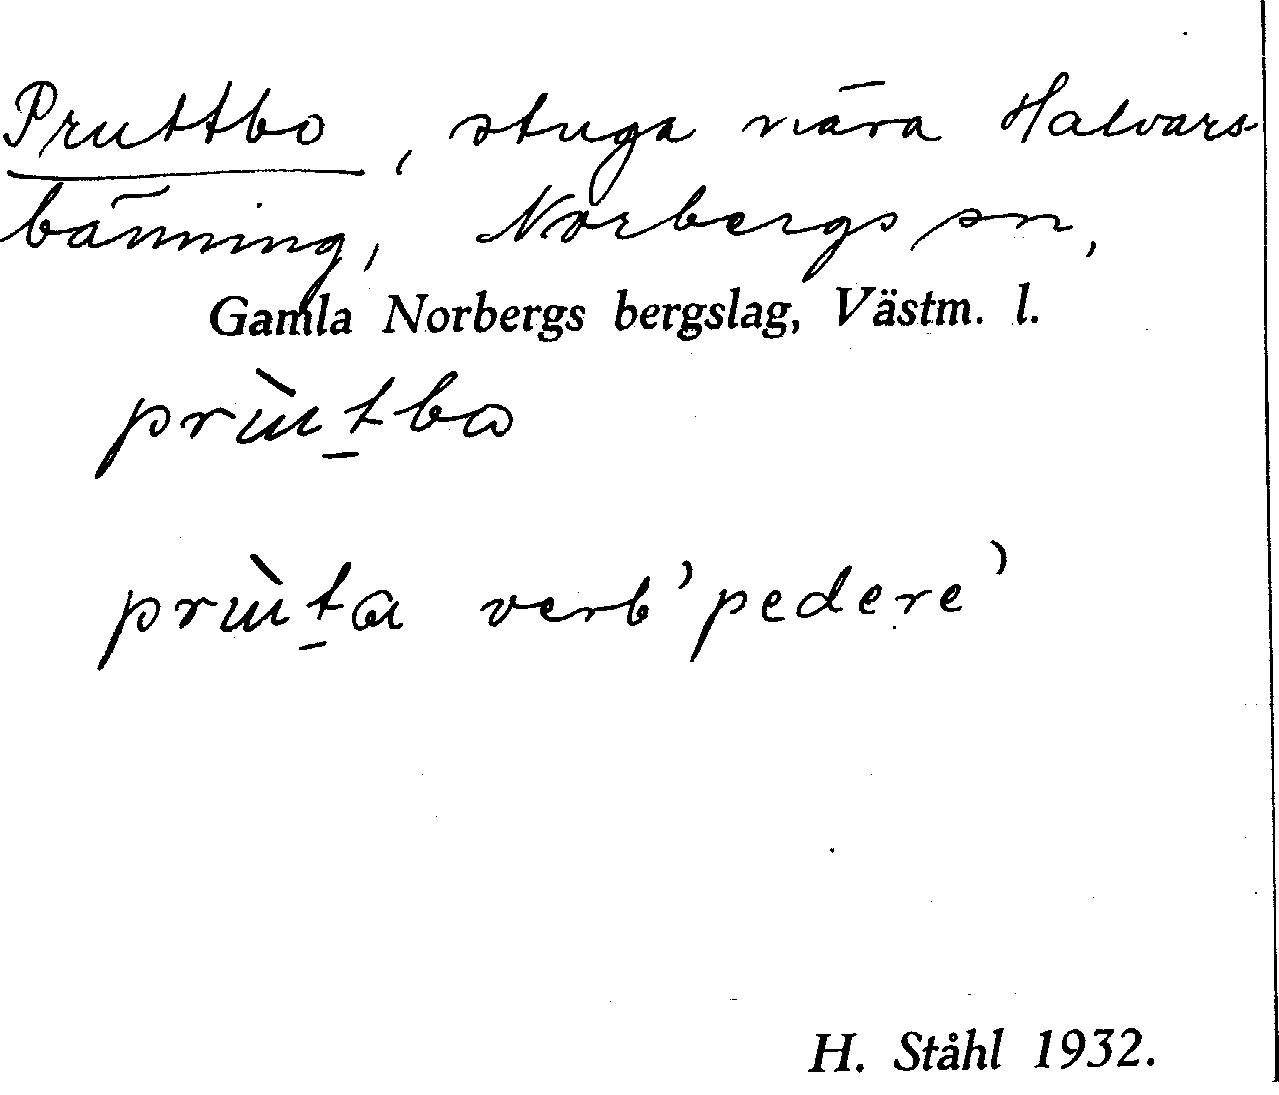 Pruttbo, stuga nära Halvars-
bänning, Norbergs sn,
Gamla Norbergs bergslag, Västm. l.
prùt̠bo
prùt̠a verb 'pedere'
H. Ståhl 1932.